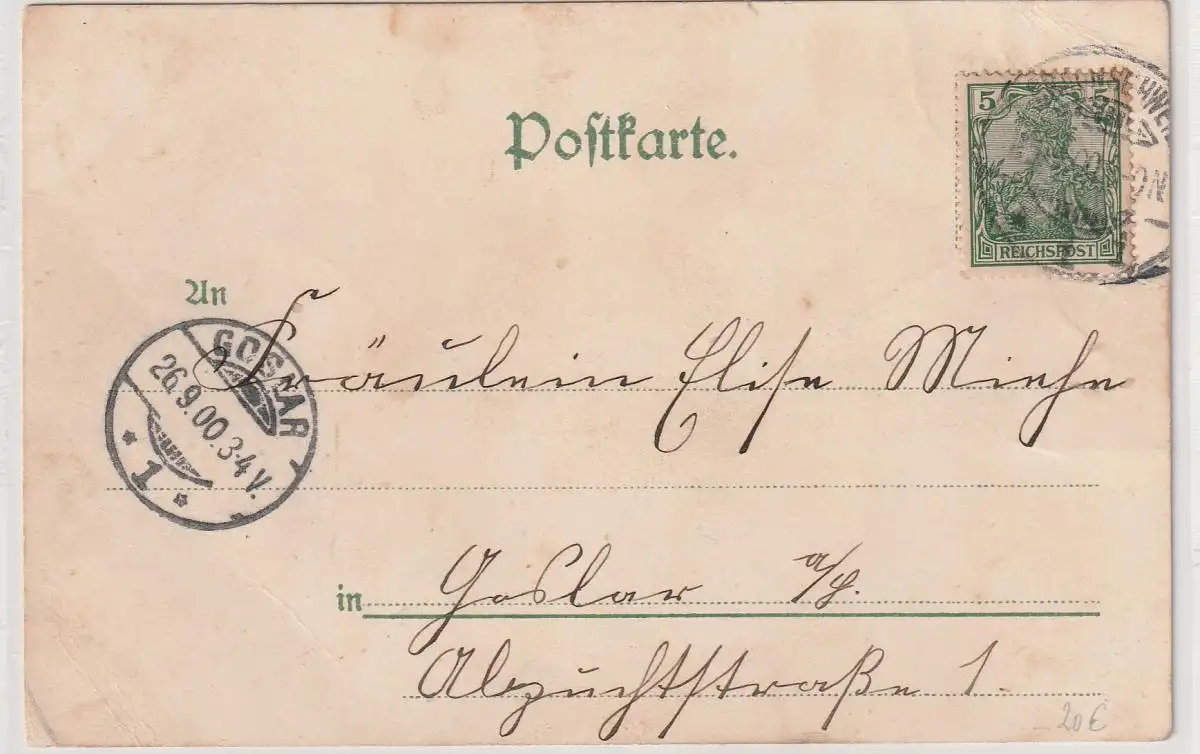 Postkarte.
5 5
REICHSPOST
An
GOSLAR
26.9.00.3-4V.
* 1 *
Fräulein Elise Miehe
in Goslar a/H.
Abzuchtstraße 1.
20€